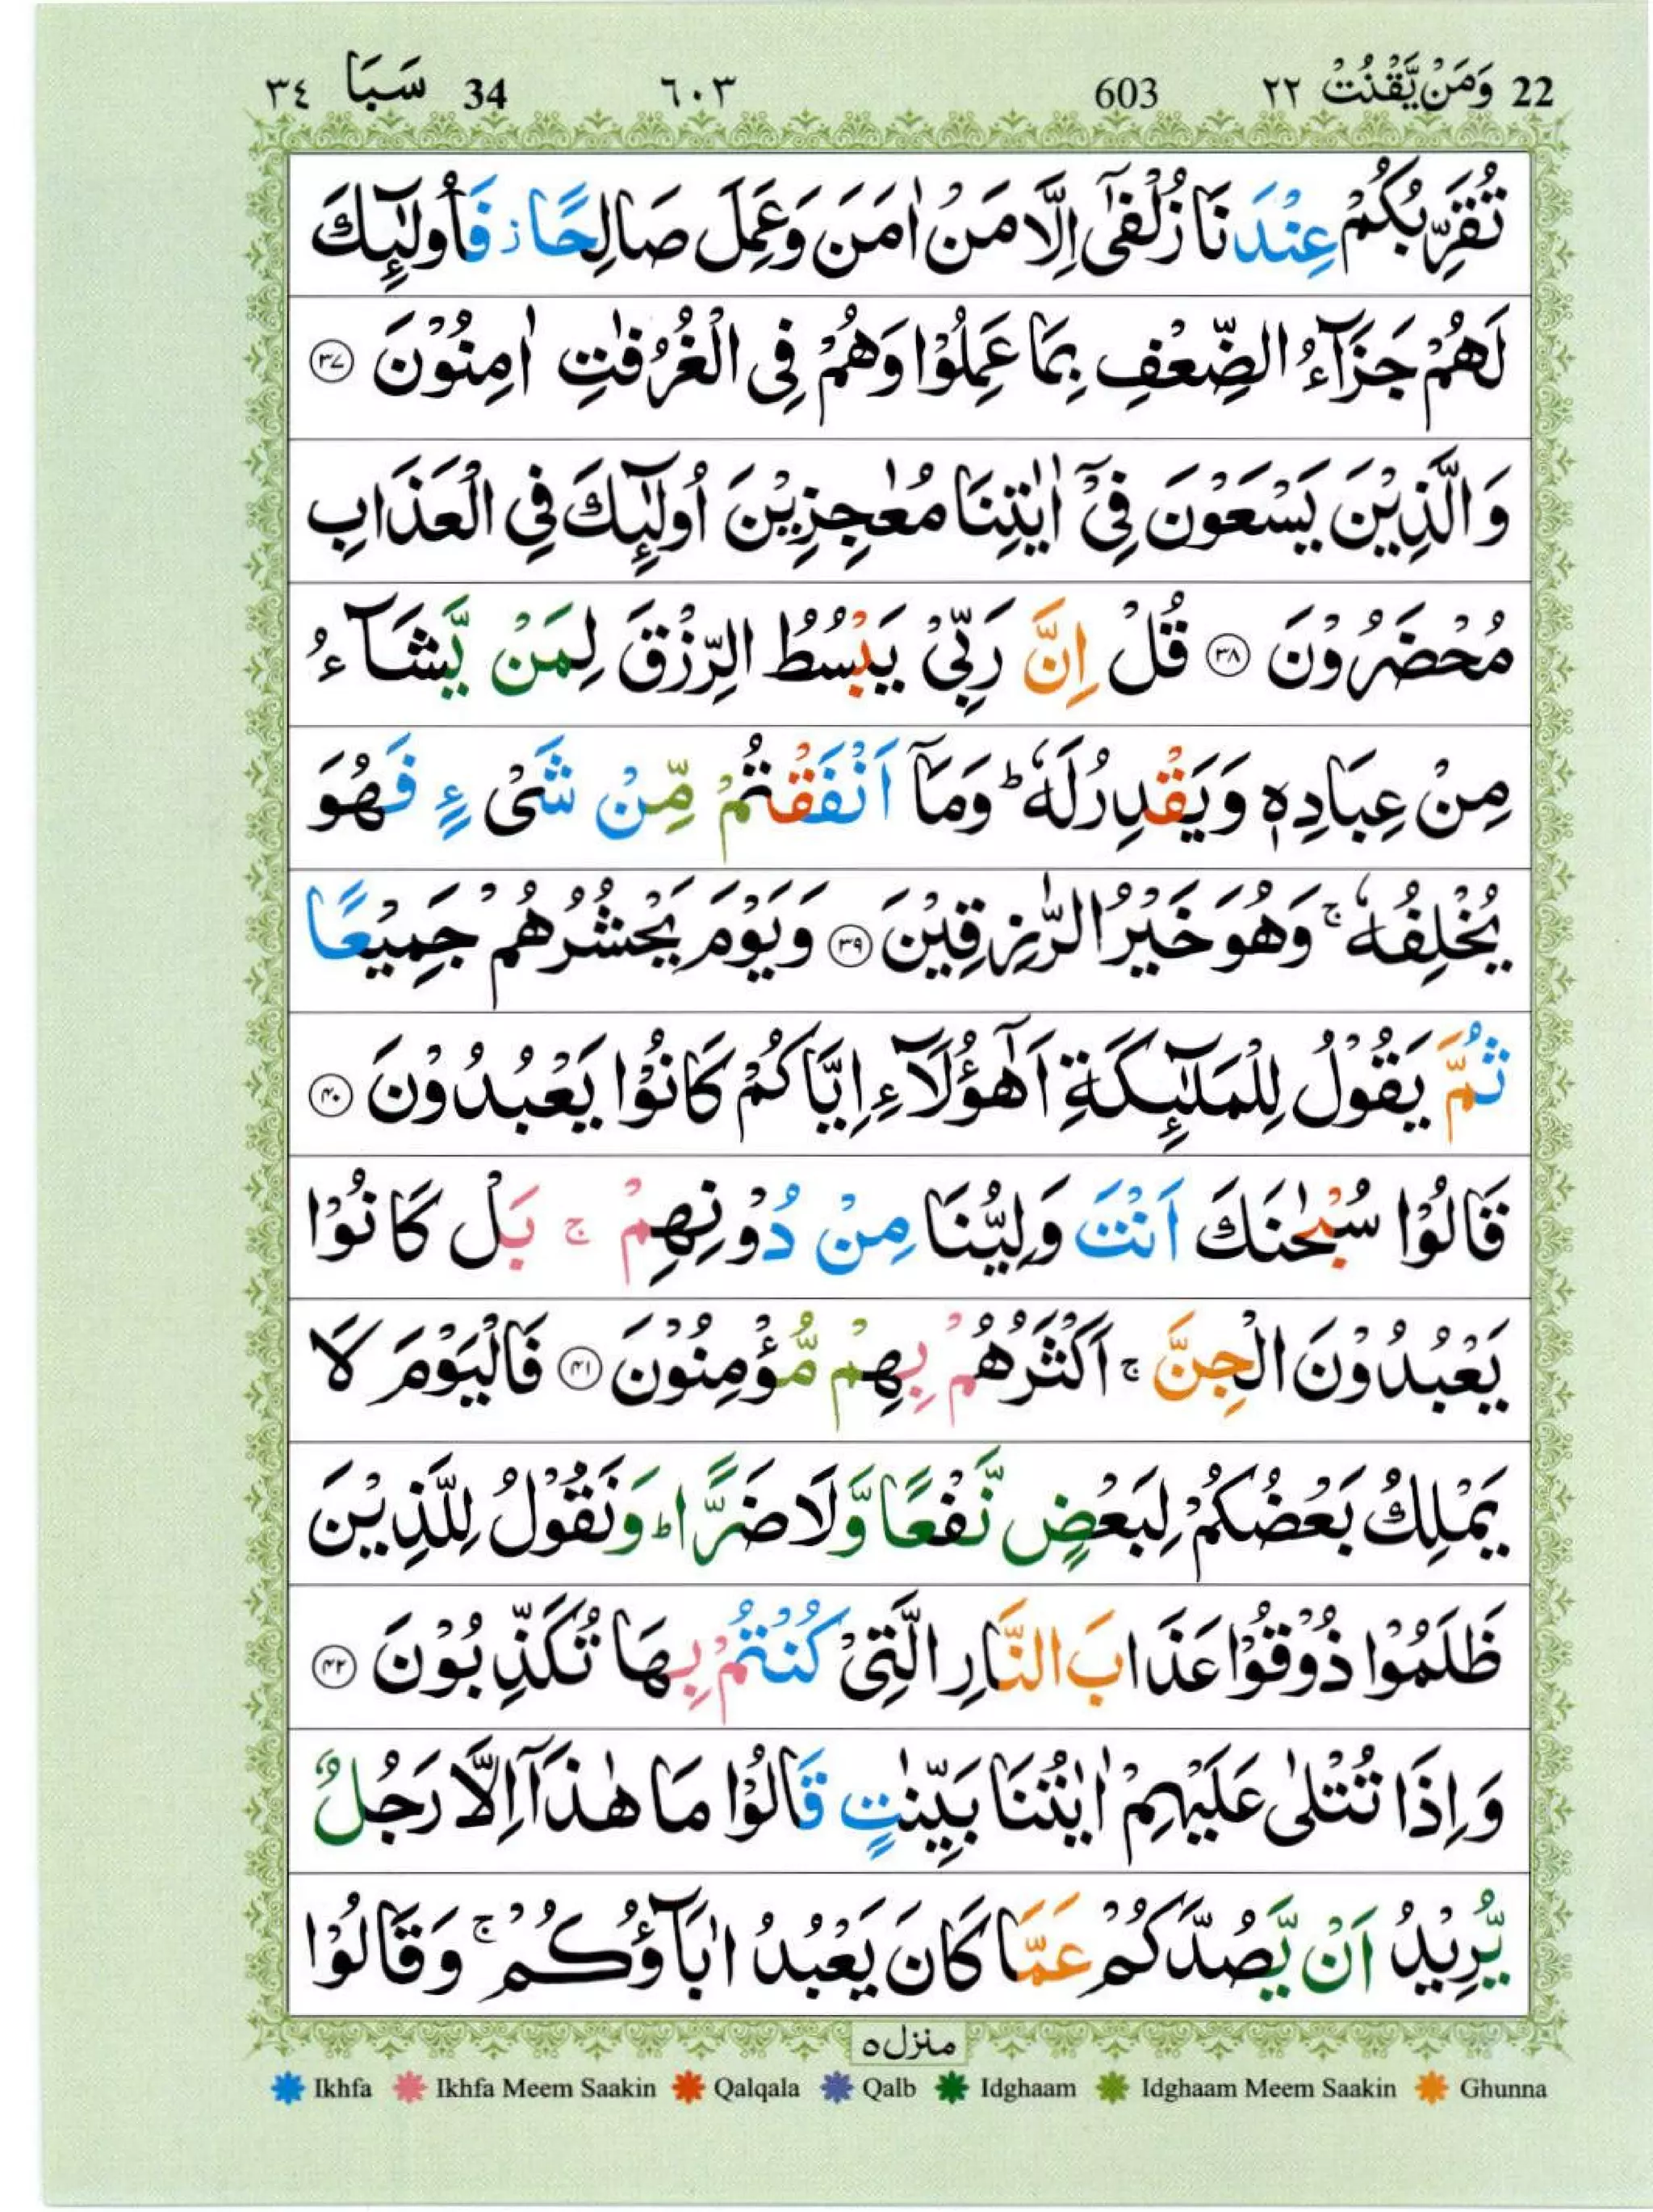 22 وَمَنْ يَّقْنُتْ ٢٢ 603 ٦٠٣ 34 سَبَا ٣٤
تُقَرِّبُكُمْ عِنْدَنَا زُلْفٰٓى اِلَّا مَنْ اٰمَنَ وَعَمِلَ صَالِحًا ز فَاُولٰٓئِكَ
لَهُمْ جَزَآءُ الضِّعْفِ بِمَا عَمِلُوْا وَهُمْ فِى الْغُرُفٰتِ اٰمِنُوْنَ ۝٣٧
وَالَّذِيْنَ يَسْعَوْنَ فِىْٓ اٰيٰتِنَا مُعٰجِزِيْنَ اُولٰٓئِكَ فِى الْعَذَابِ
مُحْضَرُوْنَ ۝٣٨ قُلْ اِنَّ رَبِّىْ يَبْسُطُ الرِّزْقَ لِمَنْ يَّشَآءُ
مِنْ عِبَادِهٖ وَيَقْدِرُ لَهٗ ؕ وَمَآ اَنْفَقْتُمْ مِّنْ شَىْءٍ فَهُوَ
يُخْلِفُهٗ ۚ وَهُوَ خَيْرُ الرّٰزِقِيْنَ ۝٣٩ وَيَوْمَ يَحْشُرُهُمْ جَمِيْعًا
ثُمَّ يَقُوْلُ لِلْمَلٰٓئِكَةِ اَهٰٓؤُلَآءِ اِيَّاكُمْ كَانُوْا يَعْبُدُوْنَ ۝٤٠
قَالُوْا سُبْحٰنَكَ اَنْتَ وَلِيُّنَا مِنْ دُوْنِهِمْ ۚ بَلْ كَانُوْا
يَعْبُدُوْنَ الْجِنَّ ۚ اَكْثَرُهُمْ بِهِمْ مُّؤْمِنُوْنَ ۝٤١ فَالْيَوْمَ لَا
يَمْلِكُ بَعْضُكُمْ لِبَعْضٍ نَّفْعًا وَّلَا ضَرًّا ؕ وَنَقُوْلُ لِلَّذِيْنَ
ظَلَمُوْا ذُوْقُوْا عَذَابَ النَّارِ الَّتِىْ كُنْتُمْ بِهَا تُكَذِّبُوْنَ ۝٤٢
وَاِذَا تُتْلٰى عَلَيْهِمْ اٰيٰتُنَا بَيِّنٰتٍ قَالُوْا مَا هٰذَآ اِلَّا رَجُلٌ
يُّرِيْدُ اَنْ يَّصُدَّكُمْ عَمَّا كَانَ يَعْبُدُ اٰبَآؤُكُمْ ۚ وَقَالُوْا
منزل ٥
Ikhfa Ikhfa Meem Saakin Qalqala Qalb Idghaam Idghaam Meem Saakin Ghunna